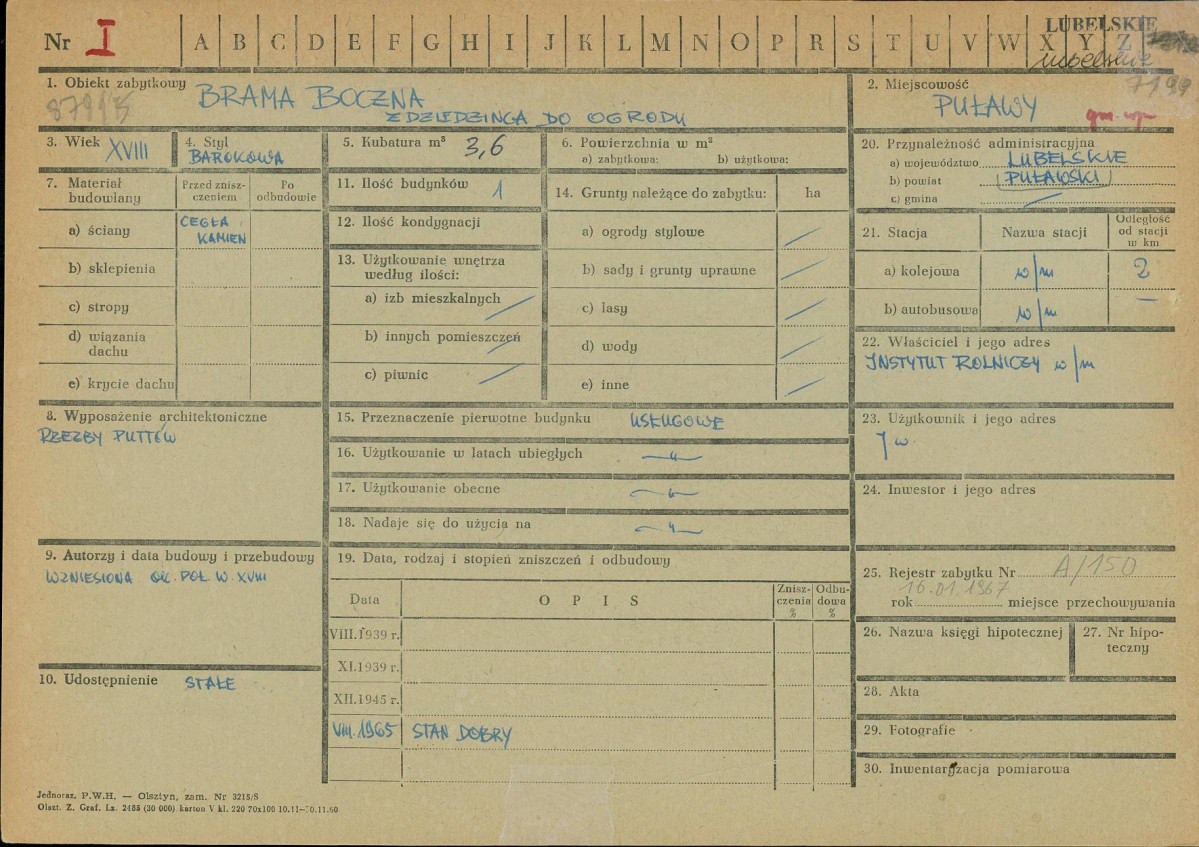 LUBELSKIE
Nr I A B C D E F G H I J K L M N O P R S T U V W X Y Z
lubelskie
7199
1. Obiekt zabytkowy BRAMA BOCZNA
Z DZIEDZIŃCA DO OGRODU
2. Miejscowość
PUŁAWY
3. Wiek XVIII
4. Styl
BAROKOWA
5. Kubatura m³ 3,6
6. Powierzchnia w m²
a) zabytkowa: b) użytkowa:
20. Przynależność administracyjna
a) województwo LUBELSKIE
b) powiat PUŁAWSKI
c) gmina —
7. Materiał budowlany
Przed zniszczeniem
Po odbudowie
a) ściany CEGŁA, KAMIEŃ
b) sklepienia
c) stropy
d) wiązania dachu
e) krycie dachu
11. Ilość budynków 1
12. Ilość kondygnacji
13. Użytkowanie wnętrza
według ilości:
a) izb mieszkalnych —
b) innych pomieszczeń —
c) piwnic —
14. Grunty należące do zabytku: ha
a) ogrody stylowe —
b) sady i grunty uprawne —
c) lasy —
d) wody —
e) inne —
21. Stacja Nazwa stacji Odległość od stacji w km
a) kolejowa w/m 2
b) autobusowa w/m —
22. Właściciel i jego adres
INSTYTUT ROLNICZY w/m
8. Wyposażenie architektoniczne
RZEŹBY PUTTÓW
15. Przeznaczenie pierwotne budynku USŁUGOWE
16. Użytkowanie w latach ubiegłych —"—
17. Użytkowanie obecne —"—
18. Nadaje się do użycia na —"—
23. Użytkownik i jego adres
J w.
24. Inwestor i jego adres
9. Autorzy i data budowy i przebudowy
WZNIESIONA OK. POŁ. W. XVIII
19. Data, rodzaj i stopień zniszczeń i odbudowy
Data O P I S Zniszczenia % Odbudowa %
VIII.1939 r.
XI.1939 r.
XII.1945 r.
VIII.1965 STAN DOBRY
25. Rejestr zabytku Nr A/150
16.01.1967
rok miejsce przechowywania
26. Nazwa księgi hipotecznej
27. Nr hipoteczny
10. Udostępnienie STAŁE
28. Akta
29. Fotografie
30. Inwentaryzacja pomiarowa
Jednoraz. P.W.H. — Olsztyn, zam. Nr 3215/S
Olszt. Z. Graf. Lz. 2485 (30 000) karton V kl. 220 70x100 10.11—30.11.60